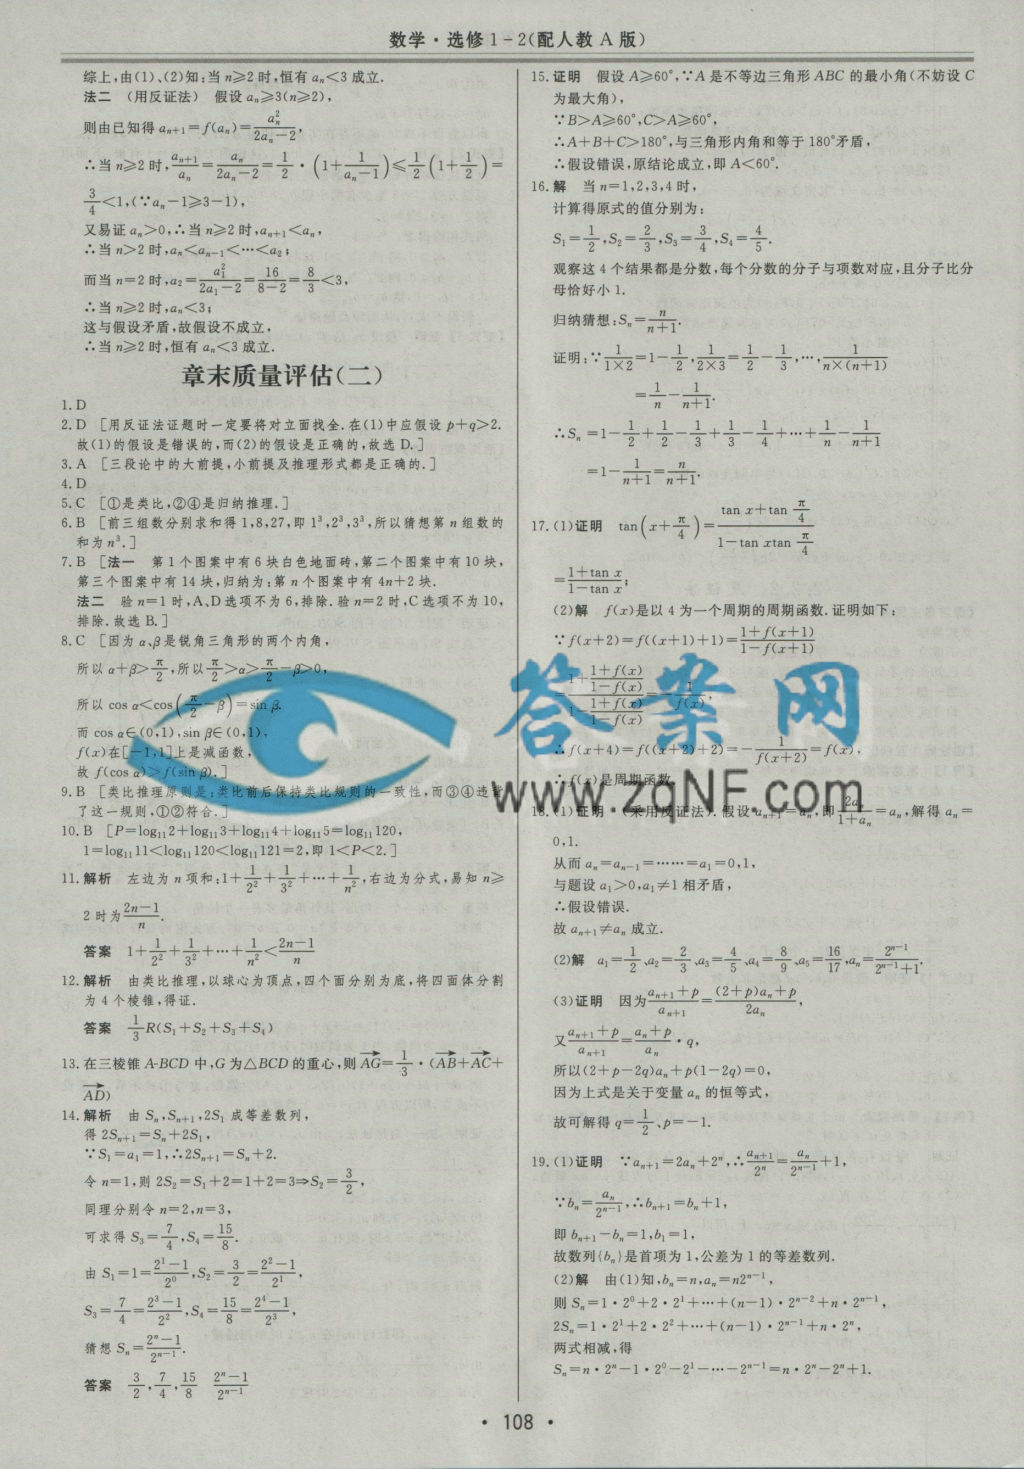 数学·选修1-2(配人教A版)
综上,由(1)、(2)知:当n≥2时,恒有aₙ<3成立.
法二 (用反证法) 假设aₙ≥3(n≥2),
则由已知得aₙ₊₁=f(aₙ)=aₙ²/(2aₙ-2),
∴当n≥2时,aₙ₊₁/aₙ=aₙ/(2aₙ-2)=1/2·(1+1/(aₙ-1))≤1/2(1+1/2)=
3/4<1,(∵aₙ-1≥3-1),
又易证aₙ>0,∴当n≥2时,aₙ₊₁<aₙ,
∴当n>2时,aₙ<aₙ₋₁<…<a₂;
而当n=2时,a₂=a₁²/(2a₁-2)=16/(8-2)=8/3<3,
∴当n≥2时,aₙ<3;
这与假设矛盾,故假设不成立,
∴当n≥2时,恒有aₙ<3成立.
章末质量评估(二)
1. D
2. D [用反证法证题时一定要将对立面找全.在(1)中应假设p+q>2.
故(1)的假设是错误的,而(2)的假设是正确的,故选D.]
3. A [三段论中的大前提,小前提及推理形式都是正确的.]
4. D
5. C [①是类比,②④是归纳推理.]
6. B [前三组数分别求和得1,8,27,即1³,2³,3³,所以猜想第n组数的
和为n³.]
7. B [法一 第1个图案中有6块白色地面砖,第二个图案中有10块,
第三个图案中有14块,归纳为:第n个图案中有4n+2块.
法二 验n=1时,A、D选项不为6,排除.验n=2时,C选项不为10,
排除.故选B.]
8. C [因为α、β是锐角三角形的两个内角,
所以α+β>π/2,所以π/2>α>π/2-β>0,
所以cos α<cos(π/2-β)=sin β.
而cos α∈(0,1),sin β∈(0,1),
f(x)在[-1,1]上是减函数,
故f(cos α)>f(sin β).]
9. B [类比推理原则是:类比前后保持类比规则的一致性,而③④违背
了这一规则,①②符合.]
10. B [P=log₁₁2+log₁₁3+log₁₁4+log₁₁5=log₁₁120,
1=log₁₁11<log₁₁120<log₁₁121=2,即1<P<2.]
11. 解析 左边为n项和:1+1/2²+1/3²+…+1/n²,右边为分式,易知n≥
2时为(2n-1)/n.
答案 1+1/2²+1/3²+…+1/n²<(2n-1)/n
12. 解析 由类比推理,以球心为顶点,四个面分别为底,将四面体分割
为4个棱锥,得证.
答案 1/3R(S₁+S₂+S₃+S₄)
13. 在三棱锥A-BCD中,G为△BCD的重心,则AG→=1/3·(AB→+AC→+
AD→)
14. 解析 由Sₙ,Sₙ₊₁,2S₁成等差数列,
得2Sₙ₊₁=Sₙ+2S₁,
∵S₁=a₁=1,∴2Sₙ₊₁=Sₙ+2.
令n=1,则2S₂=S₁+2=1+2=3⇒S₂=3/2,
同理分别令n=2,n=3,
可求得S₃=7/4,S₄=15/8.
由S₁=1=(2¹-1)/2⁰,S₂=3/2=(2²-1)/2¹,
S₃=7/4=(2³-1)/2²,S₄=15/8=(2⁴-1)/2³,
猜想Sₙ=(2ⁿ-1)/2ⁿ⁻¹.
答案 3/2,7/4,15/8 (2ⁿ-1)/2ⁿ⁻¹
15. 证明 假设A≥60°,∵A是不等边三角形ABC的最小角(不妨设C
为最大角),
∵B>A≥60°,C>A≥60°,
∴A+B+C>180°,与三角形内角和等于180°矛盾,
∴假设错误,原结论成立,即A<60°.
16. 解 当n=1,2,3,4时,
计算得原式的值分别为:
S₁=1/2,S₂=2/3,S₃=3/4,S₄=4/5.
观察这4个结果都是分数,每个分数的分子与项数对应,且分子比分
母恰好小1.
归纳猜想:Sₙ=n/(n+1).
证明:∵1/(1×2)=1-1/2,1/(2×3)=1/2-1/3,…,1/(n×(n+1))
=1/n-1/(n+1).
∴Sₙ=1-1/2+1/2-1/3+1/3-1/4+…+1/n-1/(n+1)
=1-1/(n+1)=n/(n+1).
17. (1)证明 tan(x+π/4)=(tan x+tan π/4)/(1-tan xtan π/4)
=(1+tan x)/(1-tan x);
(2)解 f(x)是以4为一个周期的周期函数.证明如下:
∵f(x+2)=f((x+1)+1)=(1+f(x+1))/(1-f(x+1))
=(1+(1+f(x))/(1-f(x)))/(1-(1+f(x))/(1-f(x)))=-1/f(x),
∴f(x+4)=f((x+2)+2)=-1/f(x+2)=f(x),
∴f(x)是周期函数.
18. (1)证明 (采用反证法).假设aₙ₊₁=aₙ,即2aₙ/(1+aₙ)=aₙ,解得aₙ=
0,1.
从而aₙ=aₙ₋₁=……=a₁=0,1,
与题设a₁>0,a₁≠1相矛盾,
∴假设错误.
故aₙ₊₁≠aₙ成立.
(2)解 a₁=1/2、a₂=2/3、a₃=4/5、a₄=8/9、a₅=16/17,aₙ=2ⁿ⁻¹/(2ⁿ⁻¹+1).
(3)证明 因为(aₙ₊₁+p)/aₙ₊₁=((2+p)aₙ+p)/2aₙ,
又(aₙ₊₁+p)/aₙ₊₁=(aₙ+p)/aₙ·q,
所以(2+p-2q)aₙ+p(1-2q)=0,
因为上式是关于变量aₙ的恒等式,
故可解得q=1/2、p=-1.
19. (1)证明 ∵aₙ₊₁=2aₙ+2ⁿ,∴aₙ₊₁/2ⁿ=aₙ/2ⁿ⁻¹+1,
∵bₙ=aₙ/2ⁿ⁻¹,∴bₙ₊₁=bₙ+1,
即bₙ₊₁-bₙ=1,b₁=1,
故数列{bₙ}是首项为1,公差为1的等差数列.
(2)解 由(1)知,bₙ=n,aₙ=n2ⁿ⁻¹,
则Sₙ=1·2⁰+2·2¹+…+(n-1)·2ⁿ⁻²+n·2ⁿ⁻¹,
2Sₙ=1·2¹+2·2²+…+(n-1)·2ⁿ⁻¹+n·2ⁿ,
两式相减,得
Sₙ=n·2ⁿ-1·2⁰-2¹-…-2ⁿ⁻¹=n·2ⁿ-2ⁿ+1.
答案网
www.zqNF.com
• 108 •